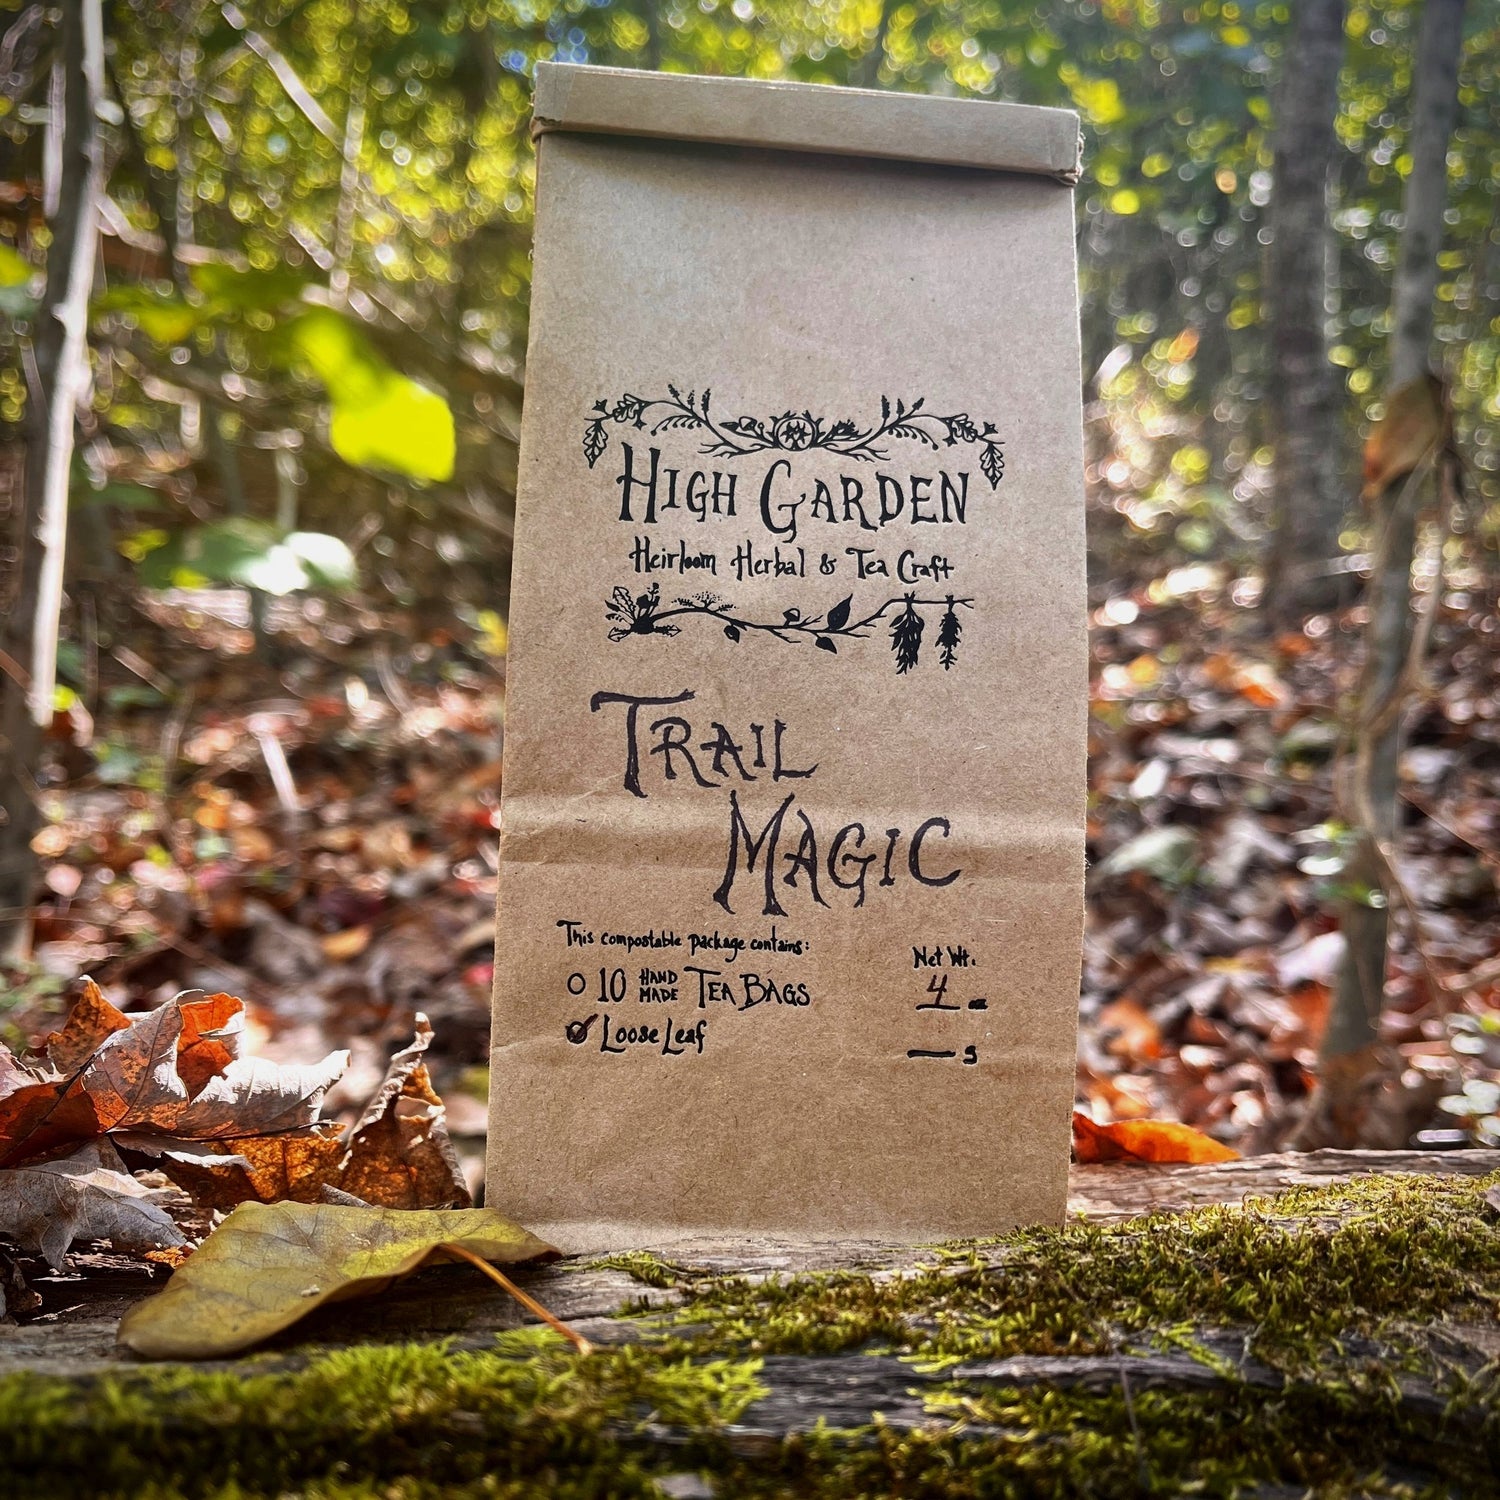 HIGH GARDEN
Heirloom Herbal & Tea Craft
TRAIL
MAGIC
This compostable package contains:
10 HAND MADE TEA BAGS
Loose Leaf
Net Wt.
4 oz
g